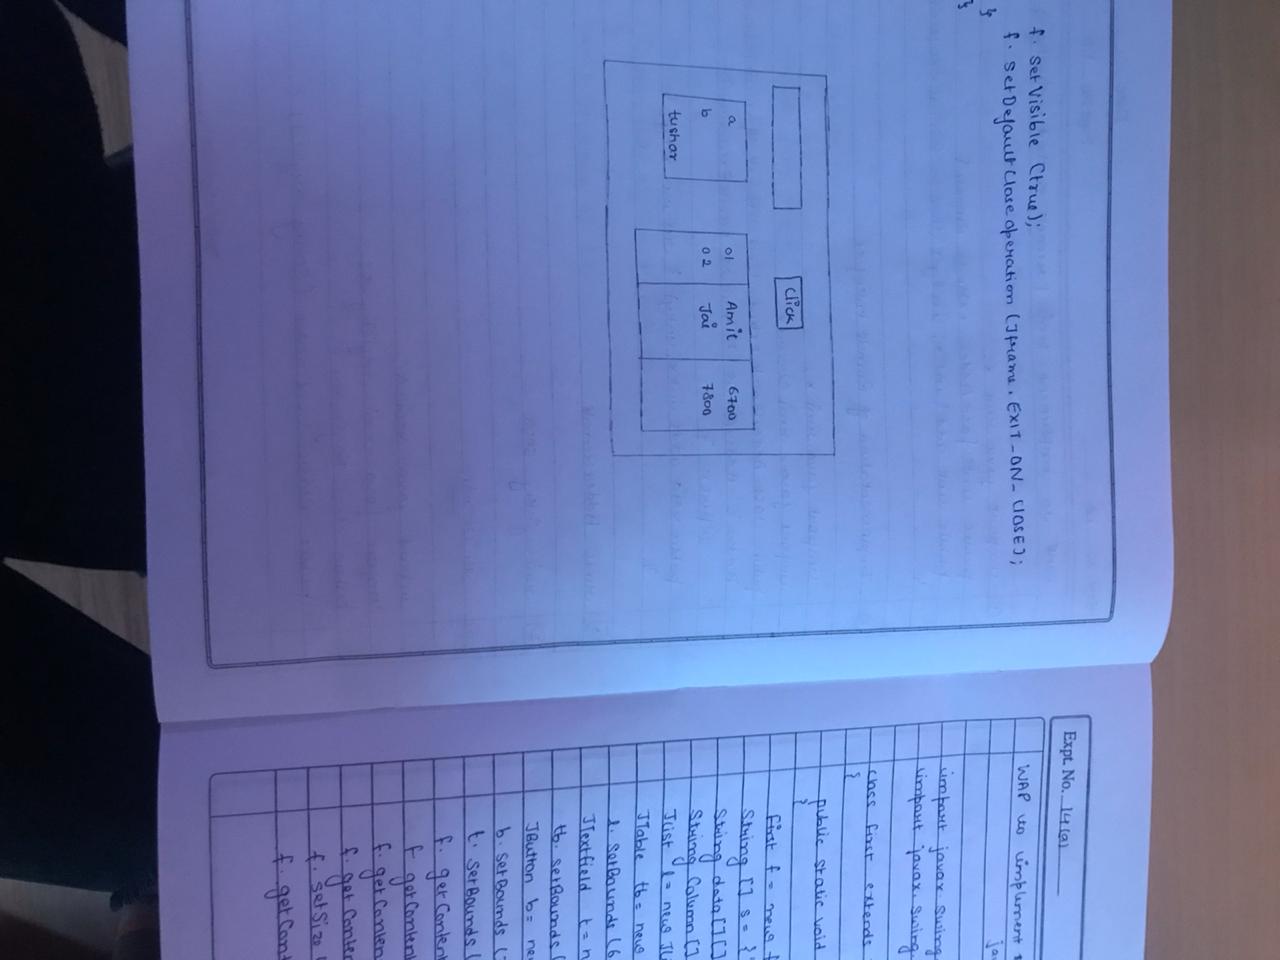 f. SetVisible (true);
f. SetDefaultCloseoperation (Jframe. EXIT-ON-ClOSE);
}
}
Click
a
b
tushar
01 Amit 6700
02 Jai 7800
Expt. No. 14(a)
WAP to implement
import javax. swing
import javax. swing.
class first extends
{
public static void
{
first f = new
String [] s = {
String data[][]
String Column []
Jlist l = new Jl
JTable tb = new
l. SetBounds (6
JTextfield t = n
tb. setBounds (
JButton b = ne
b. setBounds (
t. setBounds (
f. getConten
f. getConten
f. getConten
f. getConten
f. setSize (
f. getCont